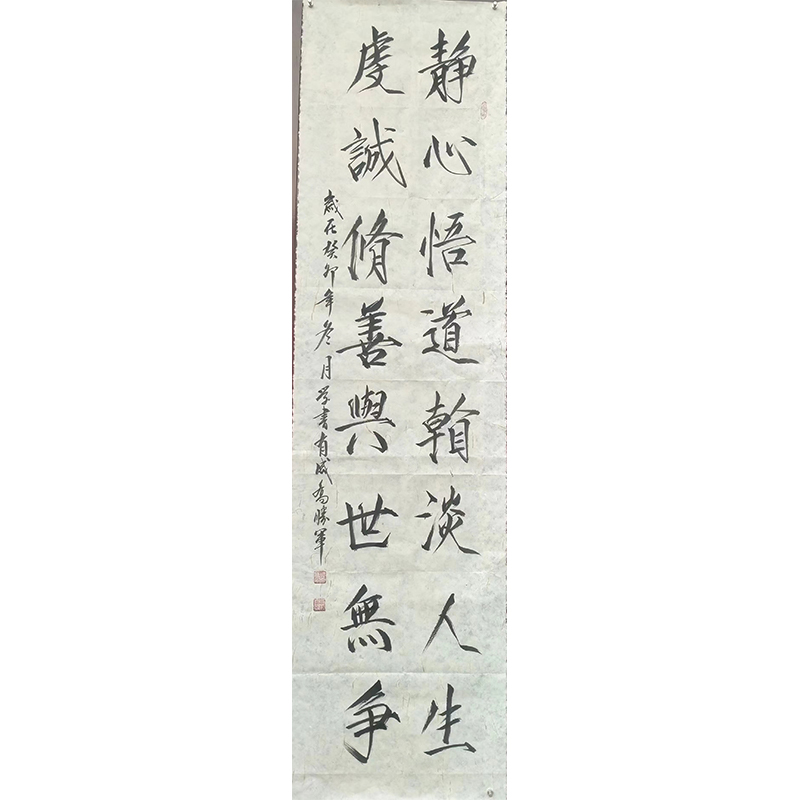 静心悟道翰淡人生
虔誠脩善與世無争
歲在癸卯年冬月学書有感喬勝軍